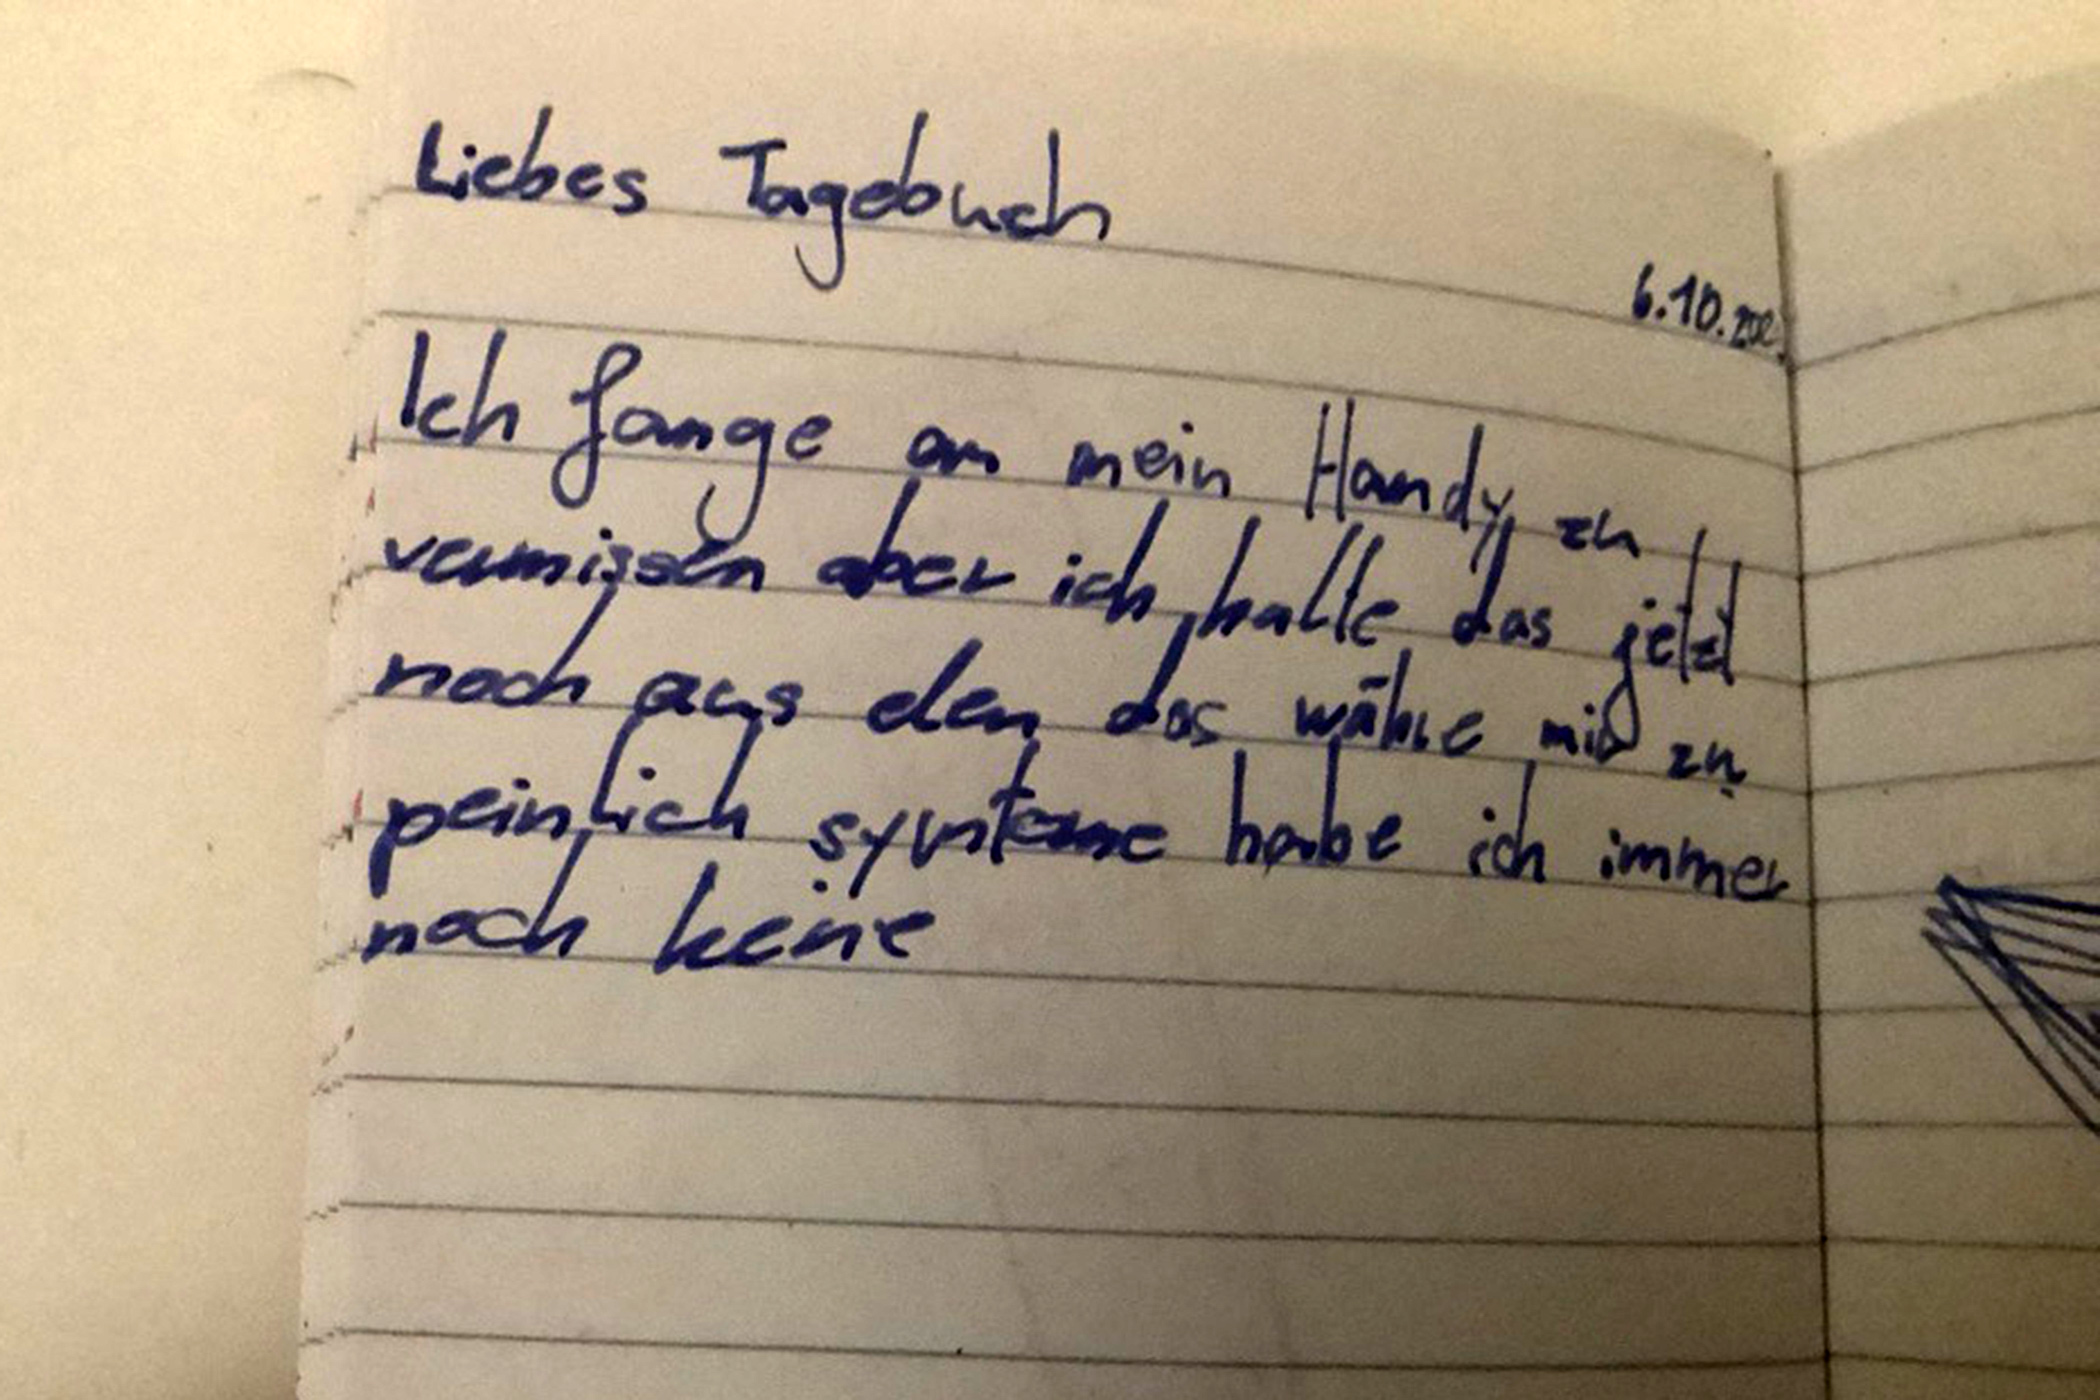 Liebes Tagebuch
6.10.202
Ich fange an mein Handy zu
vermissen aber ich halte das jetzt
noch aus den das währe mir zu
peinlich symtome habe ich immer
noch keine